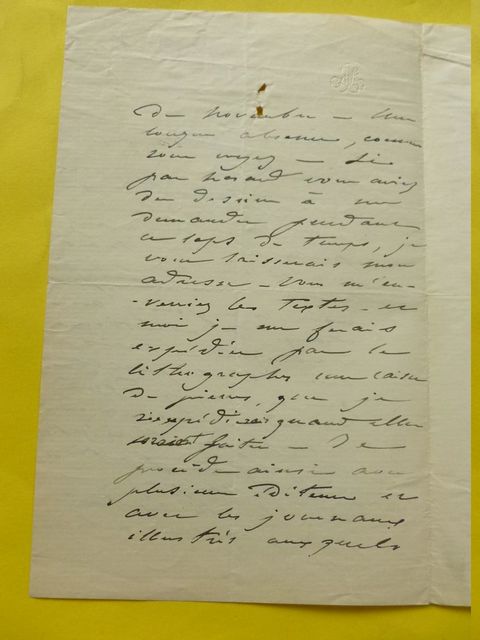 de novembre – Une
longue absence, comme
vous voyez – Si
par hasard vous aviez
des dessins à me
demander pendant
ce laps de temps, je
vous laisserais mon
adresse – Vous m'en-
-verriez les textes – et
moi je me ferais
expédier par le
lithographe une caisse
de pierres, que je
réexpédierais quand elles
seraient faites – Je
procède ainsi avec
plusieurs Editeurs et
avec les journaux
illustrés auxquels